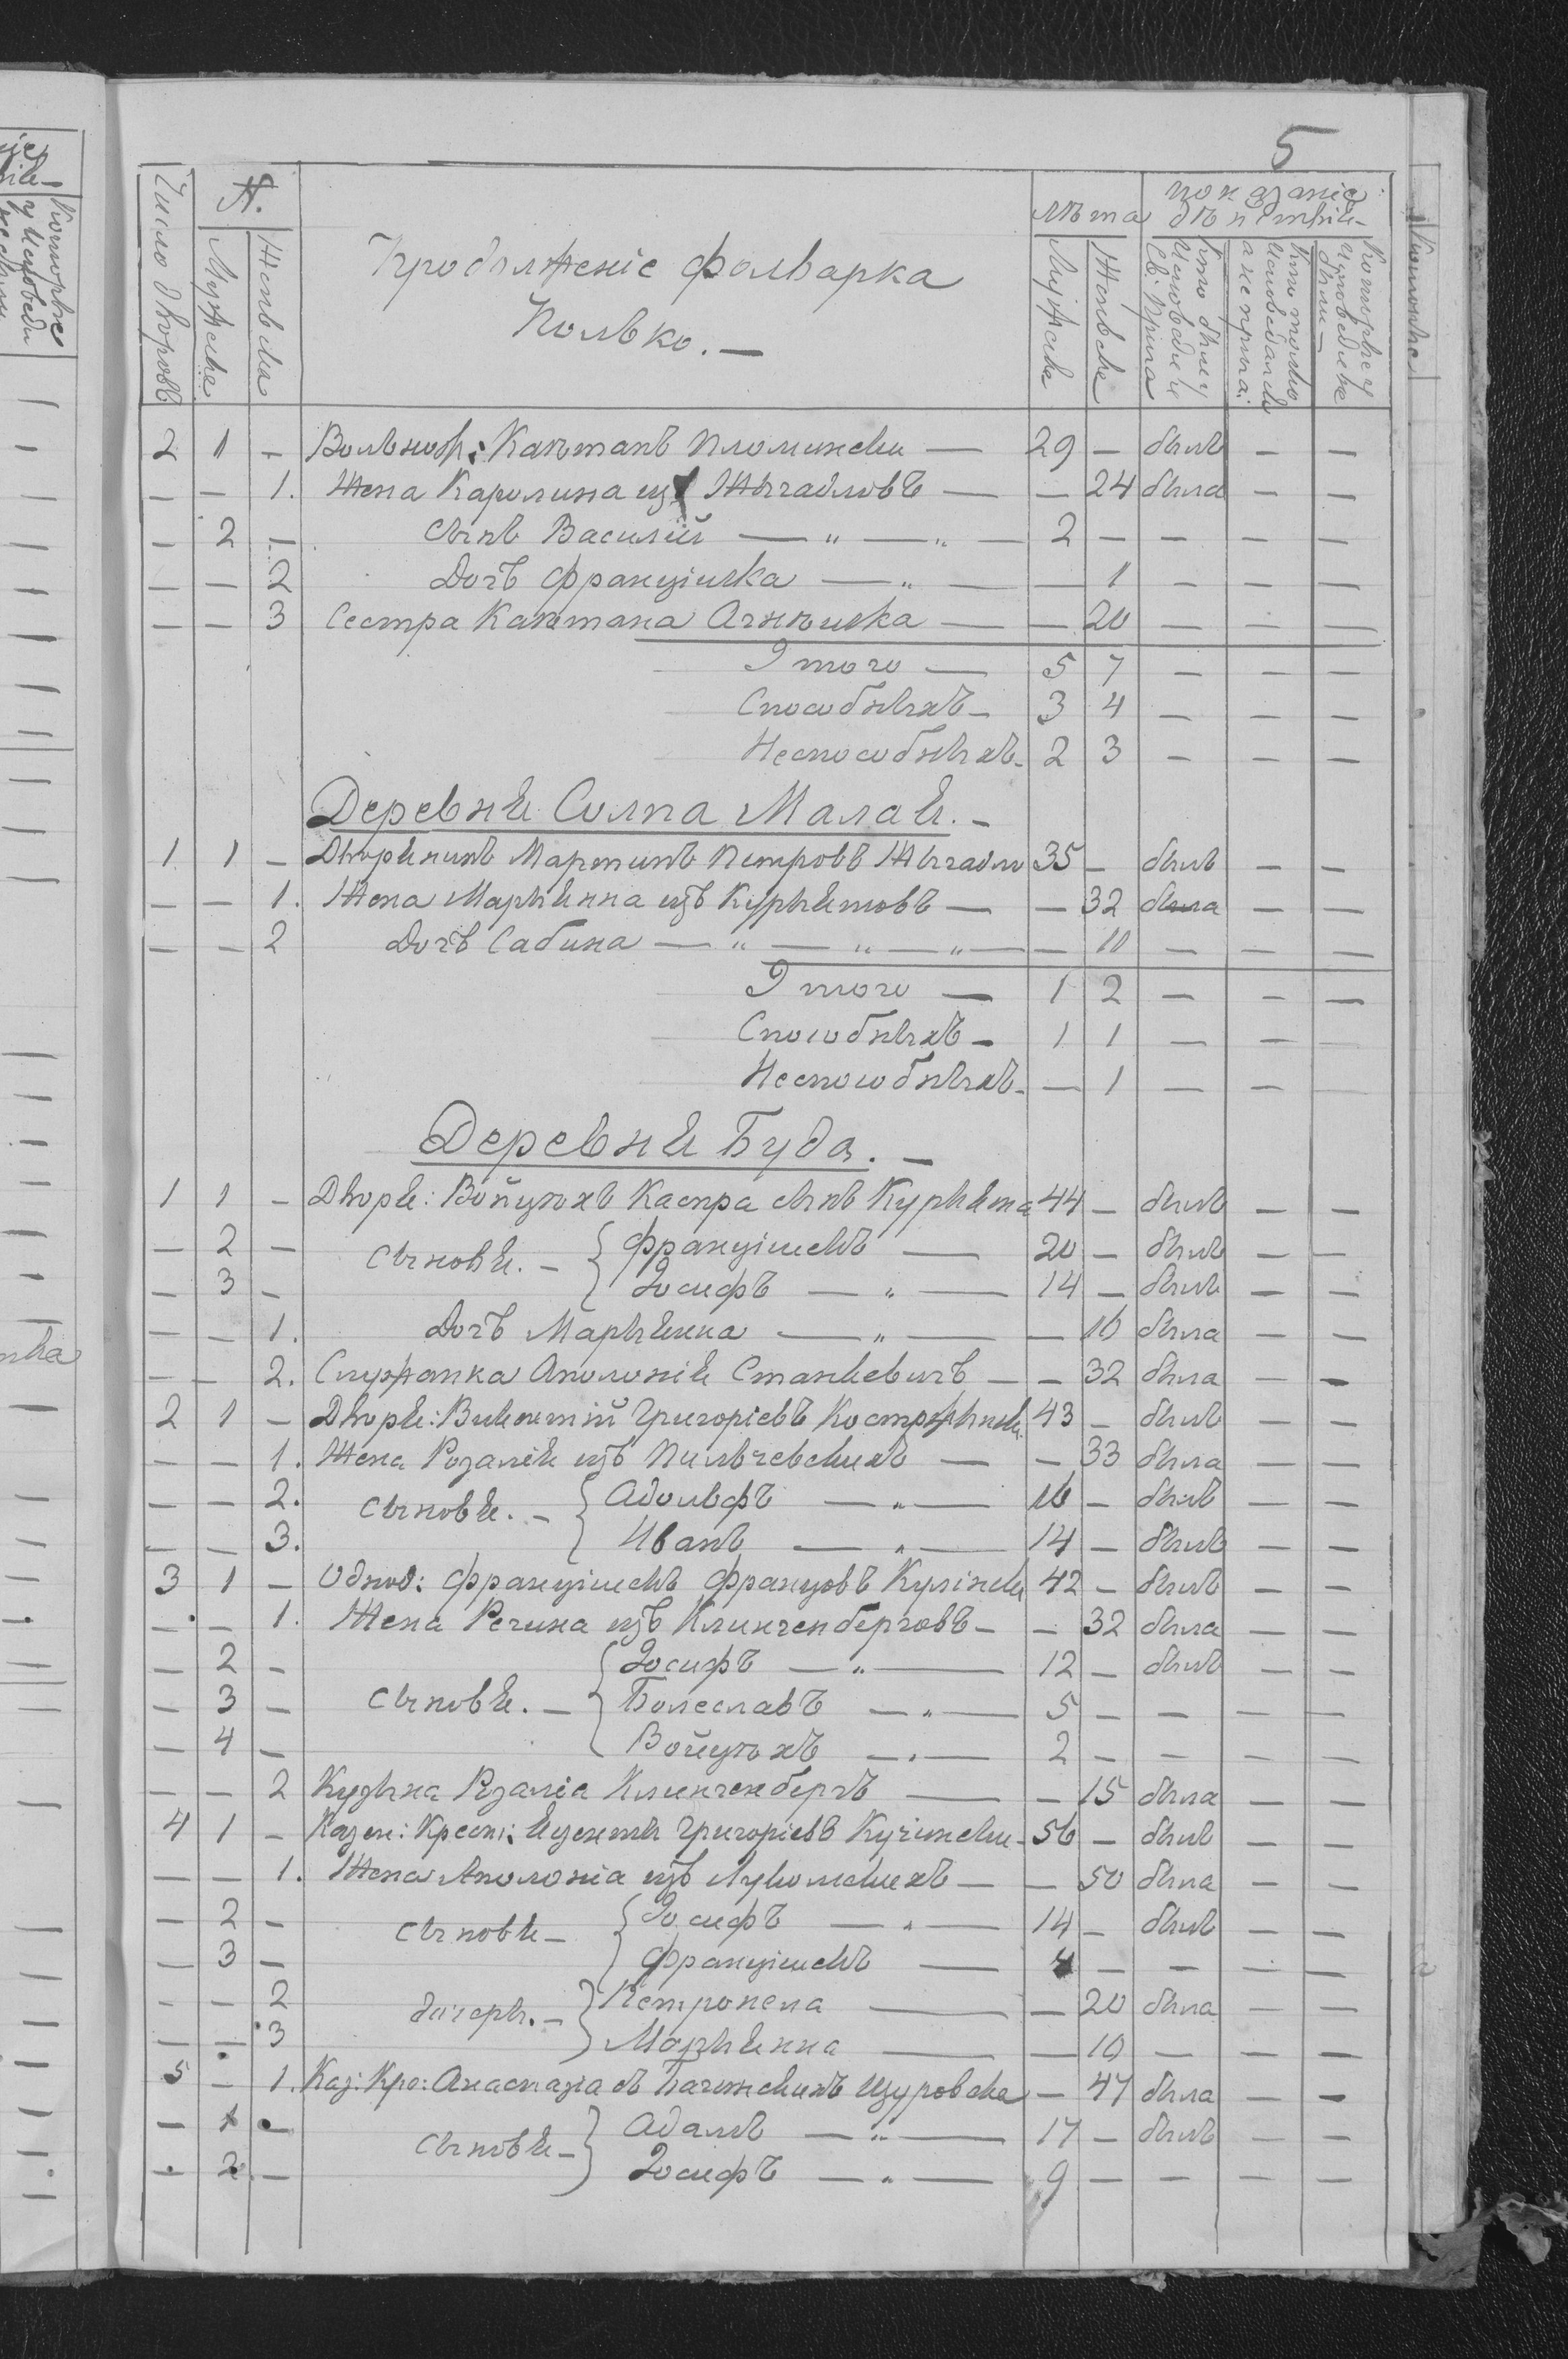 5
Число дворовъ
N.
Мужска
Женьска
Продолженіе фольварка
Полько. —
лѣта
Мужска
Женьске
показаніе
Кто были у Исповеди и Св. Прича
Кто только исповедался а не прича:
Которые у исповеди не были —
2 1 — Вольноф: Каэтанъ Пломински — 29 — былъ — —
— — 1. Жена Каролина изъ Жыгайловъ — — 24 была — —
— 2 — Сынъ Василій — „ — „ — 2 — — — —
— — 2 Дочъ Францішка — „ — — 1 — — —
— — 3 Сестра Каэтана Агнѣшка — — 20 — — —
Итого — 5 7 — — —
Способныхъ — 3 4 — — —
Неспособныхъ — 2 3 — — —
Деревня Солпа Малая. —
1 1 — Дворянинъ Мартинъ Петровъ Жыгайло 35 — былъ — —
— — 1. Жена Марыянна изъ Курыятовъ — — 32 была — —
— — 2 Дочъ Сабина — „ — „ — „ — — 11 — — —
Итого — 1 2 — — —
Способныхъ — 1 1 — —
Неспособныхъ — — 1 — —
Деревня Буда. —
1 1 — Дворя: Войцѣхъ Каспра сынъ Курыята 44 — былъ — —
— 2 — Сыновя. — { Францішекъ — 20 — былъ — —
— 3 — Іосифъ — „ — 14 — былъ — —
— — 1. Дочъ Марыянна — „ — — 16 была — —
— — 2. Служанка Аполонія Станкевичъ — — 32 была — —
2 1 — Дворя: Викентій Григоріевъ 43 — былъ — —
— — 1. Жена Розалія изъ Пильчевскихъ — — 33 была — —
— — 2. Сыновя. — { Адольфъ — „ — 16 — былъ — —
— — 3. Иванъ — „ — 14 — былъ — —
3 1 — Однод: Францішекъ Францовъ Кулінски 42 — былъ — —
— — 1. Жена Регина изъ Клингенберговъ — — 32 была — —
— 2 — { Іосифъ — „ — 12 — былъ — —
— 3 — Сыновя. — Болеславъ — „ — 5 — — — —
— 4 — Войцѣхъ — „ — 2 — — — —
— — 2 Кузына Розаліа Клингенбергъ — — 15 была — —
4 1 — Казен: Крест: Григоріевъ Кучински — 56 — былъ — —
— — 1. Жена Аполоніа изъ Лукомскихъ — — 50 была — —
— 2 — Сыновя — { Іосифъ — „ — 14 — былъ — —
— 3 — Францішекъ — 4 — — — —
— — 2 дочеры. — } Петронела — — 20 была — —
— — 3 Марыянна — — 10 — — —
5 — 1. Каз: Кре: Анастазіа съ Щуровска — 47 была — —
— 1 — Сыновя — } Адамъ — „ — 17 — былъ — —
— 2 — Іосифъ — „ — 9 — — — —